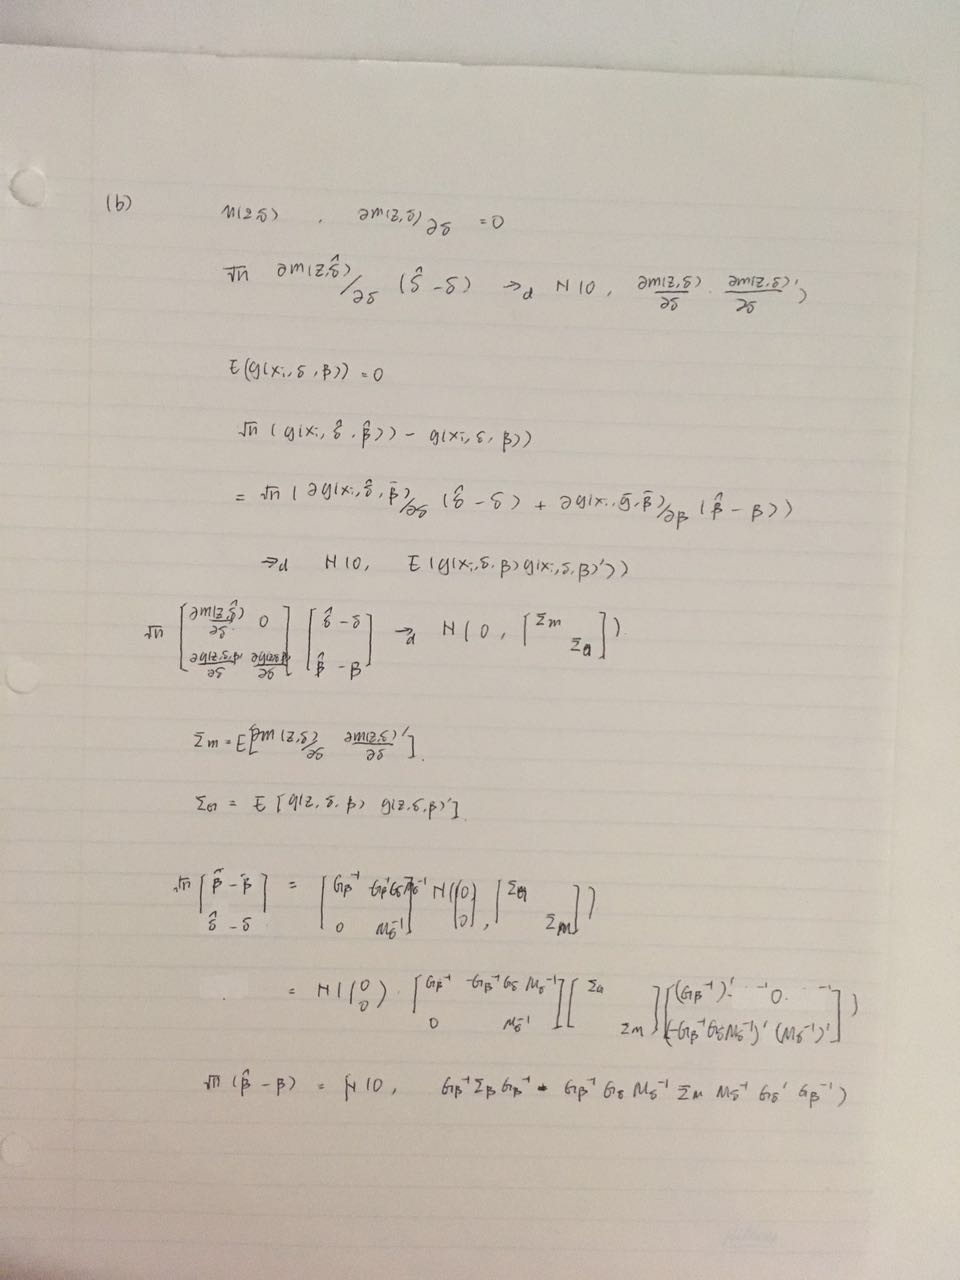 (b) m(z,δ) , ∂m(z,δ)/∂δ = 0
√n ∂m(z,δ̂)/∂δ (δ̂ - δ) →d N(0, ∂m(z,δ)/∂δ · ∂m(z,δ)'/∂δ)
E(g(xi,δ,β)) = 0
√n (g(xi,δ̂,β̂)) - g(xi,δ,β))
= √n (∂g(xi,δ̂,β̄)/∂δ (δ̂ - δ) + ∂g(xi,δ̄,β̄)/∂β (β̂ - β))
→d N(0, E(g(xi,δ,β)g(xi,δ,β)'))
√n [∂m(z,δ̂)/∂δ 0 ; ∂g(z,δ,β)/∂δ ∂g(z,δ,β)/∂β] [δ̂ - δ ; β̂ - β] →d N(0, [Σm ; Σg]).
Σm = E[∂m(z,δ)/∂δ ∂m(z,δ)'/∂δ].
Σg = E[g(z,δ,β) g(z,δ,β)']
√n [β̂ - β ; δ̂ - δ] = [Gβ⁻¹ Gβ⁻¹GδMδ⁻¹ ; 0 Mδ⁻¹] N((0 ; 0), [Σg ; Σm])
= N((0 ; 0), [Gβ⁻¹ -Gβ⁻¹GδMδ⁻¹ ; 0 Mδ⁻¹][Σg ; Σm][(Gβ⁻¹)' 0 ; (-Gβ⁻¹GδMδ⁻¹)' (Mδ⁻¹)'])
√n (β̂ - β) = N(0, Gβ⁻¹ΣβGβ⁻¹ + Gβ⁻¹GδMδ⁻¹ΣmMδ⁻¹Gδ'Gβ⁻¹')